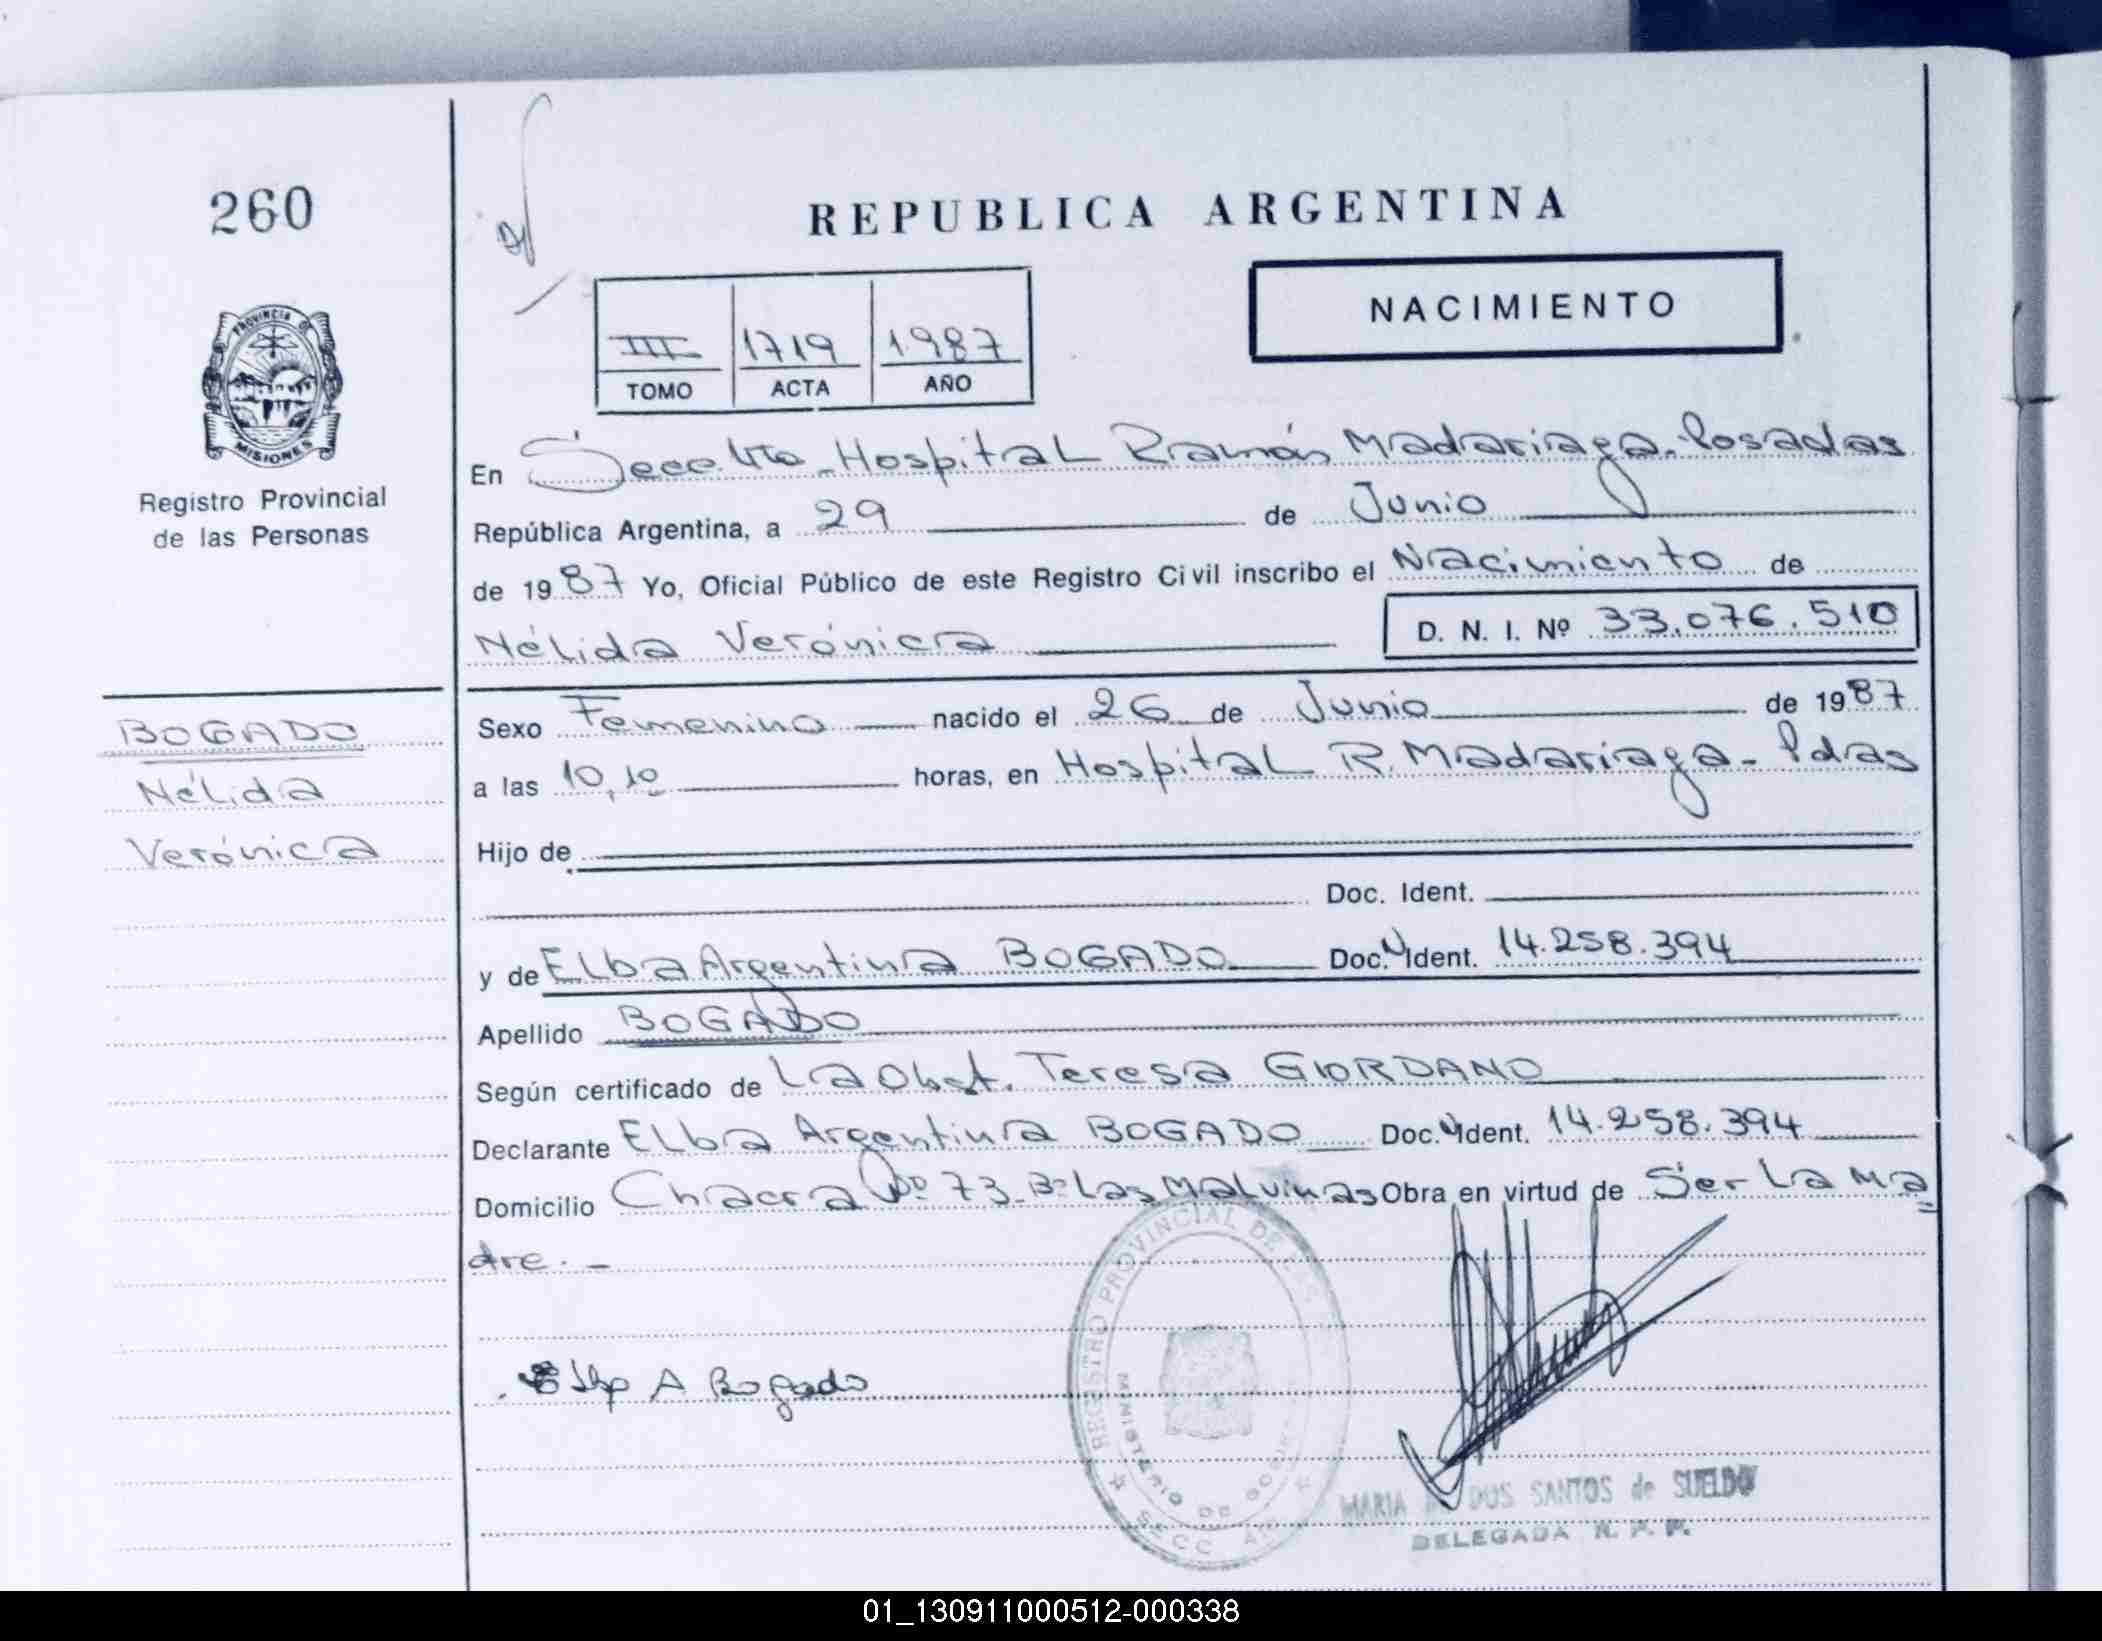 260
REPUBLICA ARGENTINA
NACIMIENTO
III 1719 1987
TOMO ACTA AÑO
PROVINCIA DE
MISIONES
Registro Provincial
de las Personas
En Secc. 4ta. Hospital Ramón Madariaga. Posadas
República Argentina, a 29 de Junio
de 1987 Yo, Oficial Público de este Registro Civil inscribo el Nacimiento de
Nélida Verónica
D. N. I. Nº 33.076.510
BOGADO
Nélida
Verónica
Sexo Femenino nacido el 26 de Junio de 1987
a las 10,10 horas, en Hospital R. Madariaga - Pdas
Hijo de
Doc. Ident.
y de Elba Argentina BOGADO Doc. Ident. 14.258.394
Apellido BOGADO
Según certificado de La Obst. Teresa GIORDANO
Declarante Elba Argentina BOGADO Doc. Ident. 14.258.394
Domicilio Chacra Nº 73 Bº Las Malvinas Obra en virtud de Ser La Ma=
dre. -
REGISTRO PROVINCIAL DE LAS
MINISTERIO DE
SECC
A Bogado
MARIA DOS SANTOS de SUELDO
DELEGADA R. P. P.
01_130911000512-000338